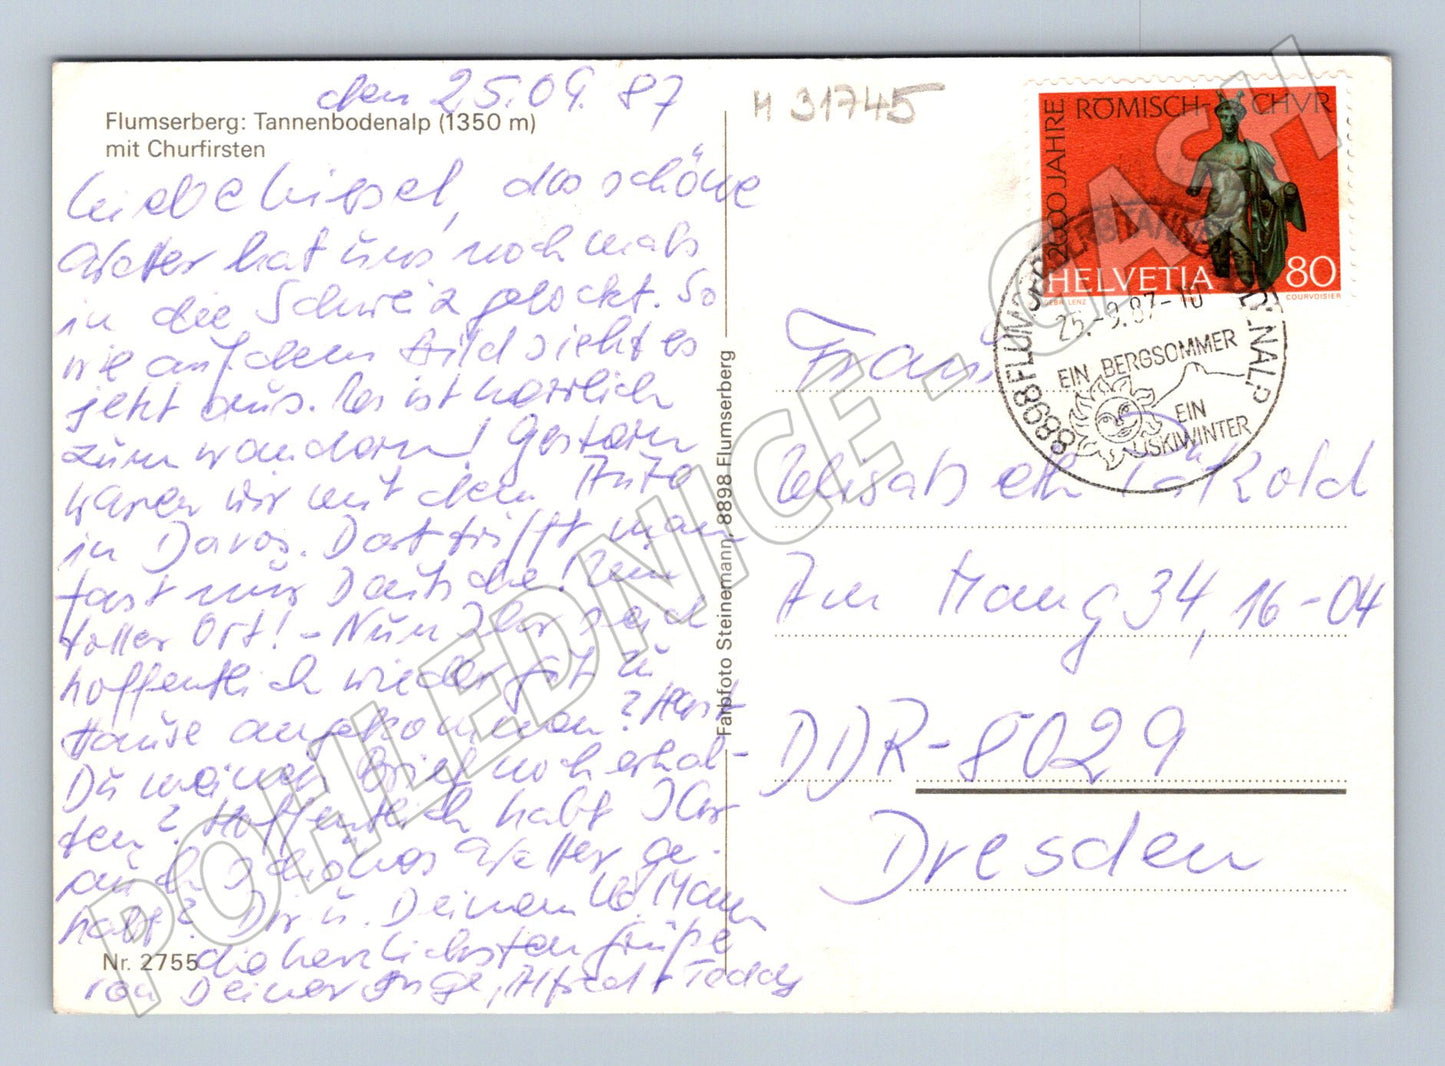 den 25.09.87
Flumserberg: Tannenbodenalp (1350 m)
mit Churfirsten
Liebe Liesel, das schöne
Wetter hat uns nochmals
in die Schweiz gelockt. So
wie auf dem Bild sieht es
jetzt aus. Es ist herrlich
zum wandern! Gestern
waren wir mit dem Auto
in Davos. Dort trifft man
fast nur Deutsche. Kein
toller Ort! - Nun Ihr seid
hoffentlich wieder gut zu
Hause angekommen? Hast
Du meinen Brief noch erhal-
ten? Hoffentlich habt Ihr
auch schönes Wetter ge-
habt? Dir u. Deinem lb. Mann
die herzlichsten Grüße
von Deiner Inge, Alfred + Teddy
Nr. 2755
Farbfoto Steinemann, 8898 Flumserberg
H 31745
2000 JAHRE RÖMISCH-CHUR
HELVETIA 80
GEBR. LENZ COURVOISIER
8898 FLUMSERBERG TANNENBODENALP
25.-9.87-10
EIN BERGSOMMER
EIN
SKIWINTER
Frau
Elisabeth Pätzold
Am Hang 34, 16-04
DDR-8029
Dresden
POHLEDNICE - CASH